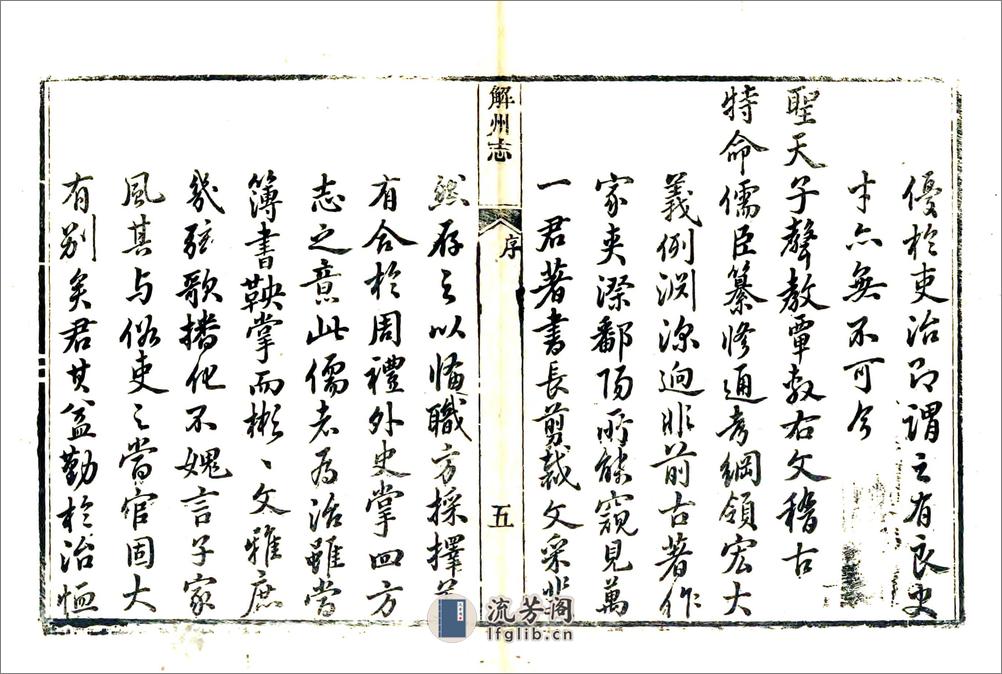 優於吏治即謂之有良史
才亦無不可今
聖天子聲教覃敷右文稽古
特命儒臣纂修通考綱領宏大
義例淵源迥非前古著作
家夾漈鄱陽所能窺見萬
一君著書長剪裁文采斐
解州志
序
五
然存之以備職方採擇
有合於周禮外史掌四方
志之意此儒者為治雖當
簿書鞅掌而彬〻文雅庶
幾弦歌播化不媿言子家
風其与俗吏之當官固大
有别矣君其益勤於治恤
流芳阁
lfglib.cn